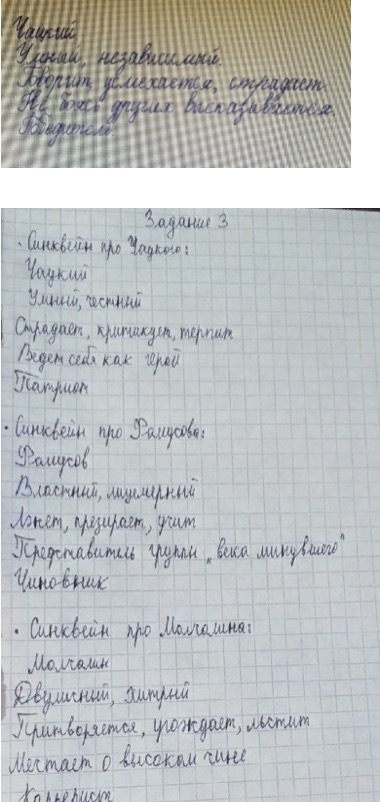 Чацкий
Умный, независимый.
Говорит, усмехается, страдает.
Не боясь других высказывается.
Победитель.
Задание 3
· Синквейн про Чацкого:
Чацкий
Умный, честный
Страдает, критикует, терпит
Ведет себя как герой
Патриот
· Синквейн про Фамусова:
Фамусов
Властный, лицемерный
Лжет, презирает, учит
Представитель группы „века минувшего"
Чиновник
· Синквейн про Молчалина:
Молчалин
Двуличный, хитрый
Притворяется, угождает, льстит
Мечтает о высоком чине
Карьерист